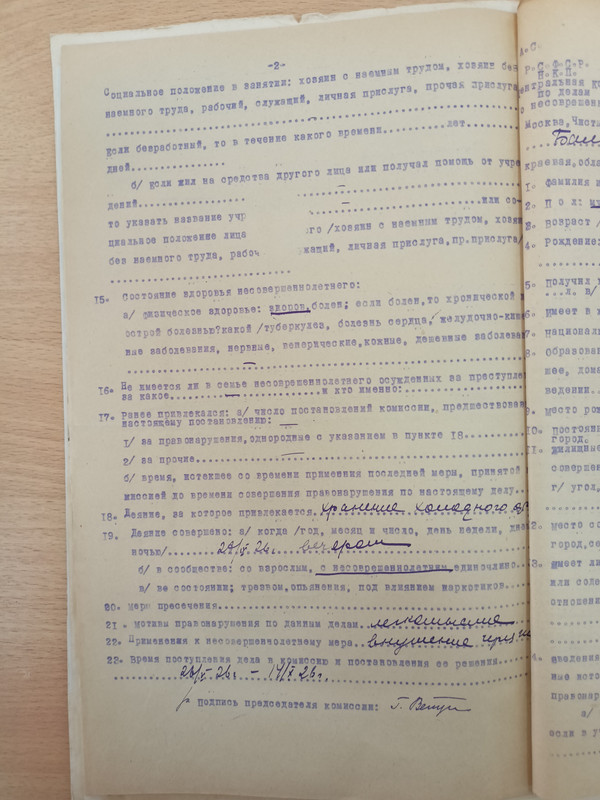 -2-
Социальное положение в занятии: хозяин с наемным трудом, хозяин без
наемного труда, рабочий, служащий, личная прислуга, прочая прислуга
если безработный, то в течение какого времени..........лет
дней
б/ если жил на средства другого лица или получал помощь от учре
дений – или со-
то указать название учр го /хозяин с наемным трудом, хозя
циальное положение лица
без наемного труда, рабоч жащий, личная прислуга, пр.прислуга/
15. Состояние здоровья несовершеннолетнего:
а/ физическое здоровье: здоров, болен; если болен, то хронической и
острой болезнью?какой /туберкулез, болезнь сердца, желудочно-кише
ные заболевания, нервные, венерические, кожные, душевные заболева
16. Не имеется ли в семье несовершеннолетнего осужденных за преступле
за какое — и кто именно:
17. Ранее привлекался: а/ число постановлений комиссии, предшествовав
настоящему постановлению: —
1/ за правонарушения, однородные с указанием в пункте 18
2/ за прочие
б/ время, истекшее со времени применения последней меры, принятой к
миссией до времени совершения правонарушения по настоящему делу
18. Деяние, за которое привлекается хранение холодного ор
19. Деяние совершено: а/ когда /год, месяц и число, день недели, дне
ночью/ вечером
б/ в сообществе: со взрослым, с несовершеннолетним единолично
в/ не состоянии; трезвом, опьянения, под влиянием наркотиков
20. Мера пресечения
21. Мотивы правонарушения по данным делам легкомыслие
22. Применения к несовершеннолетнему мера внушение
23. Время поступления дела в комиссию и постановления ее решения
26/V-26г. – 14/X 26г.
Подпись председателя комиссии:
А.С.
Р.С.Ф.С.Р.
Н.К.П.
по делам
о несовершен
Москва, Чисты
краевая, обла
1. Фамилия и
2. Пол: му
3. Возраст /
4. Рождение:
5. Получил
6. Имеет в
7. Национал
8. Образован
шее, дома
ведении
9. Место рож
10. Постоян
город.
11. Жилищные
совершен
г/ угол,
12. Место со
город, се
имеет ли
или соде
отношени
сведения
ние кото
правонар
а/
если в у